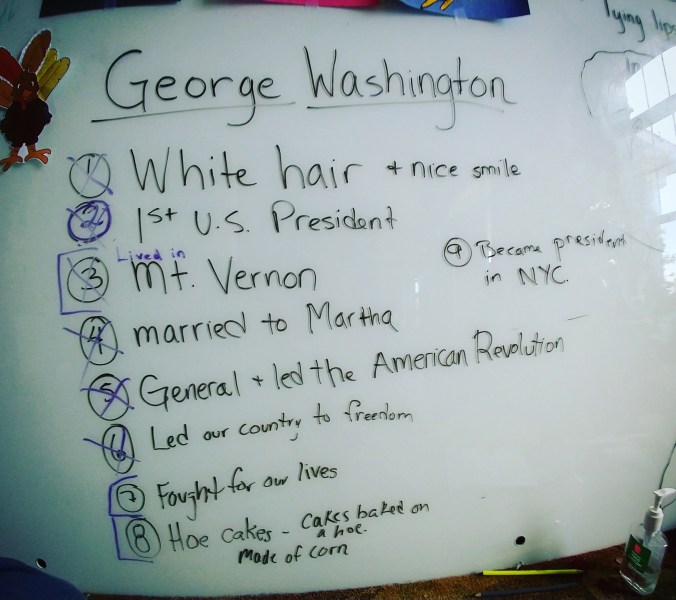 lying lips
George Washington
1 White hair + nice smile
2 1st U.S. President
Lived in
3 Mt. Vernon
9 Became president
in NYC.
4 married to Martha
5 General + led the American Revolution
6 Led our country to freedom
7 Fought for our lives
8 Hoe cakes - cakes baked on
a hoe.
made of corn